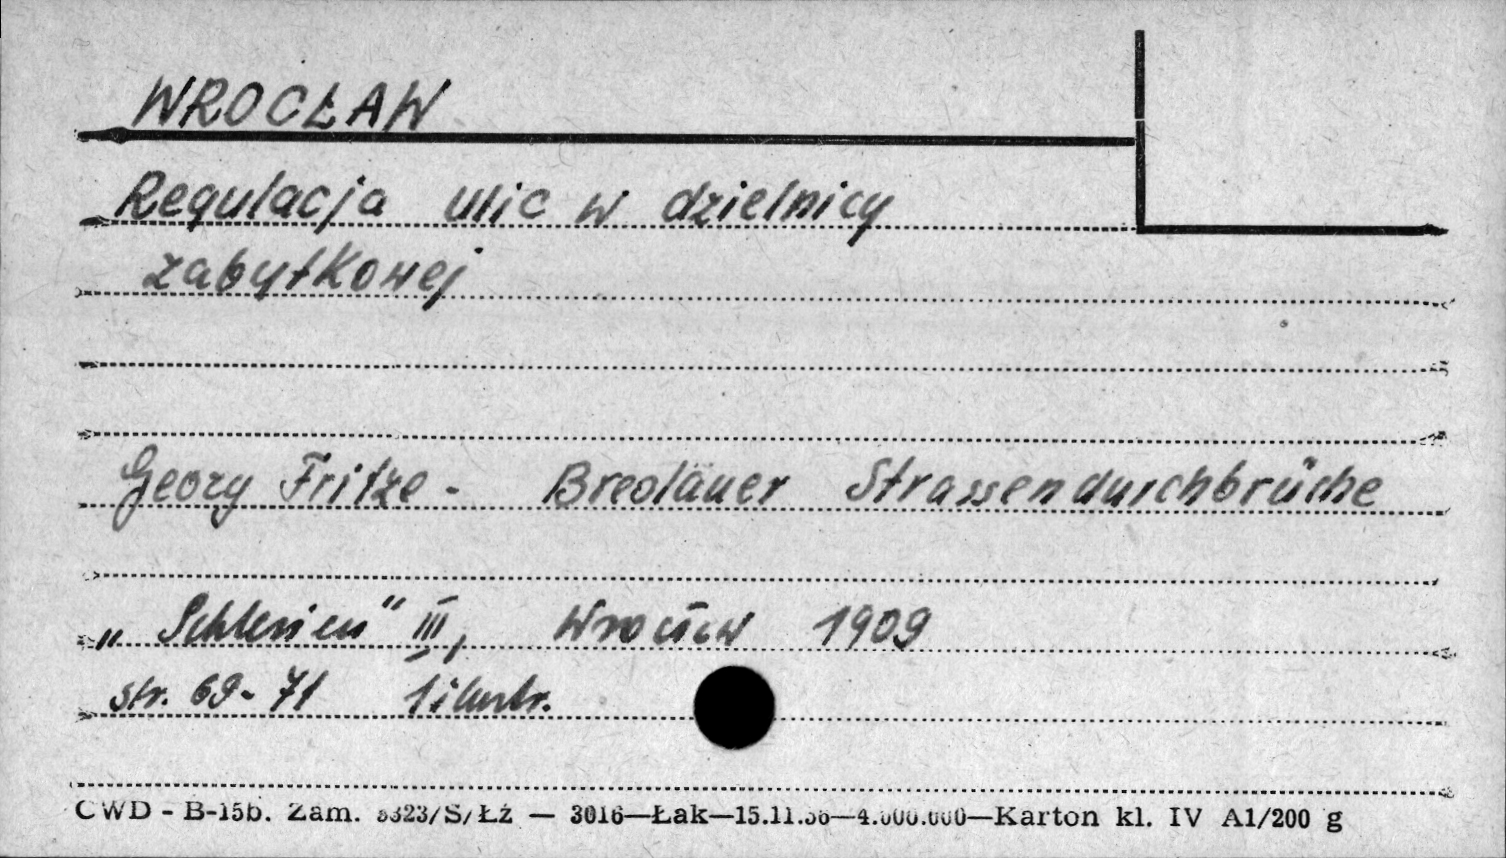 WROCŁAW
Regulacja ulic w dzielnicy
zabytkowej
Georg Fritze - Breolauer Strassendurchbrüche
„Schlesien" III, Wrocław 1909
str. 69-71 1 ilustr.
CWD - B-15b. Zam. 8323/S/Łż — 3016—Łak—15.11.56—4.000.000—Karton kl. IV A1/200 g